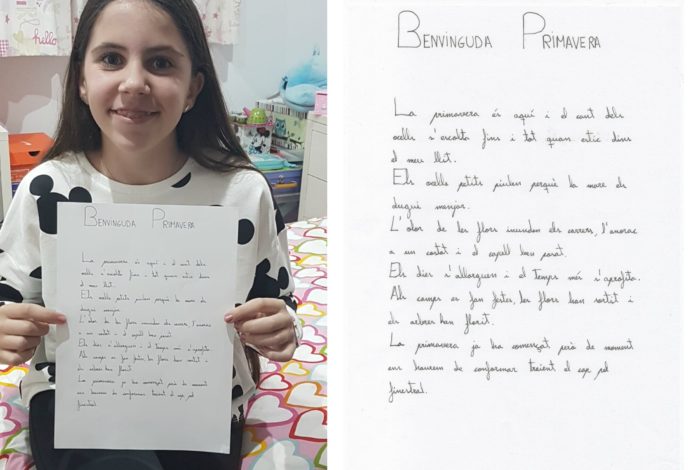 hello
BENVINGUDA PRIMAVERA
La primavera és aquí i el cant dels
ocells s'escolta fins i tot quan estic dins
el meu llit.
Els ocells petits piulen perquè la mare els
dugui menjar.
L'olor de les flors inunden els carrers, l'anorac
a un costat i el capell ben posat.
Els dies s'allarguen i el temps més s'aprofita.
Als camps es fan festes, les flors han sortit i
els arbres han florit.
La primavera ja ha començat però de moment
ens haurem de conformar traient el cap pel
finestral.
BENVINGUDA PRIMAVERA
La primavera és aquí i el cant dels
ocells s'escolta fins i tot quan estic dins
el meu llit.
Els ocells petits piulen perquè la mare els
dugui menjar.
L'olor de les flors inunden els carrers, l'anorac
a un costat i el capell ben posat.
Els dies s'allarguen i el temps més s'aprofita.
Als camps es fan festes, les flors han sortit i
els arbres han florit.
La primavera ja ha començat però de moment
ens haurem de conformar traient el cap pel
finestral.